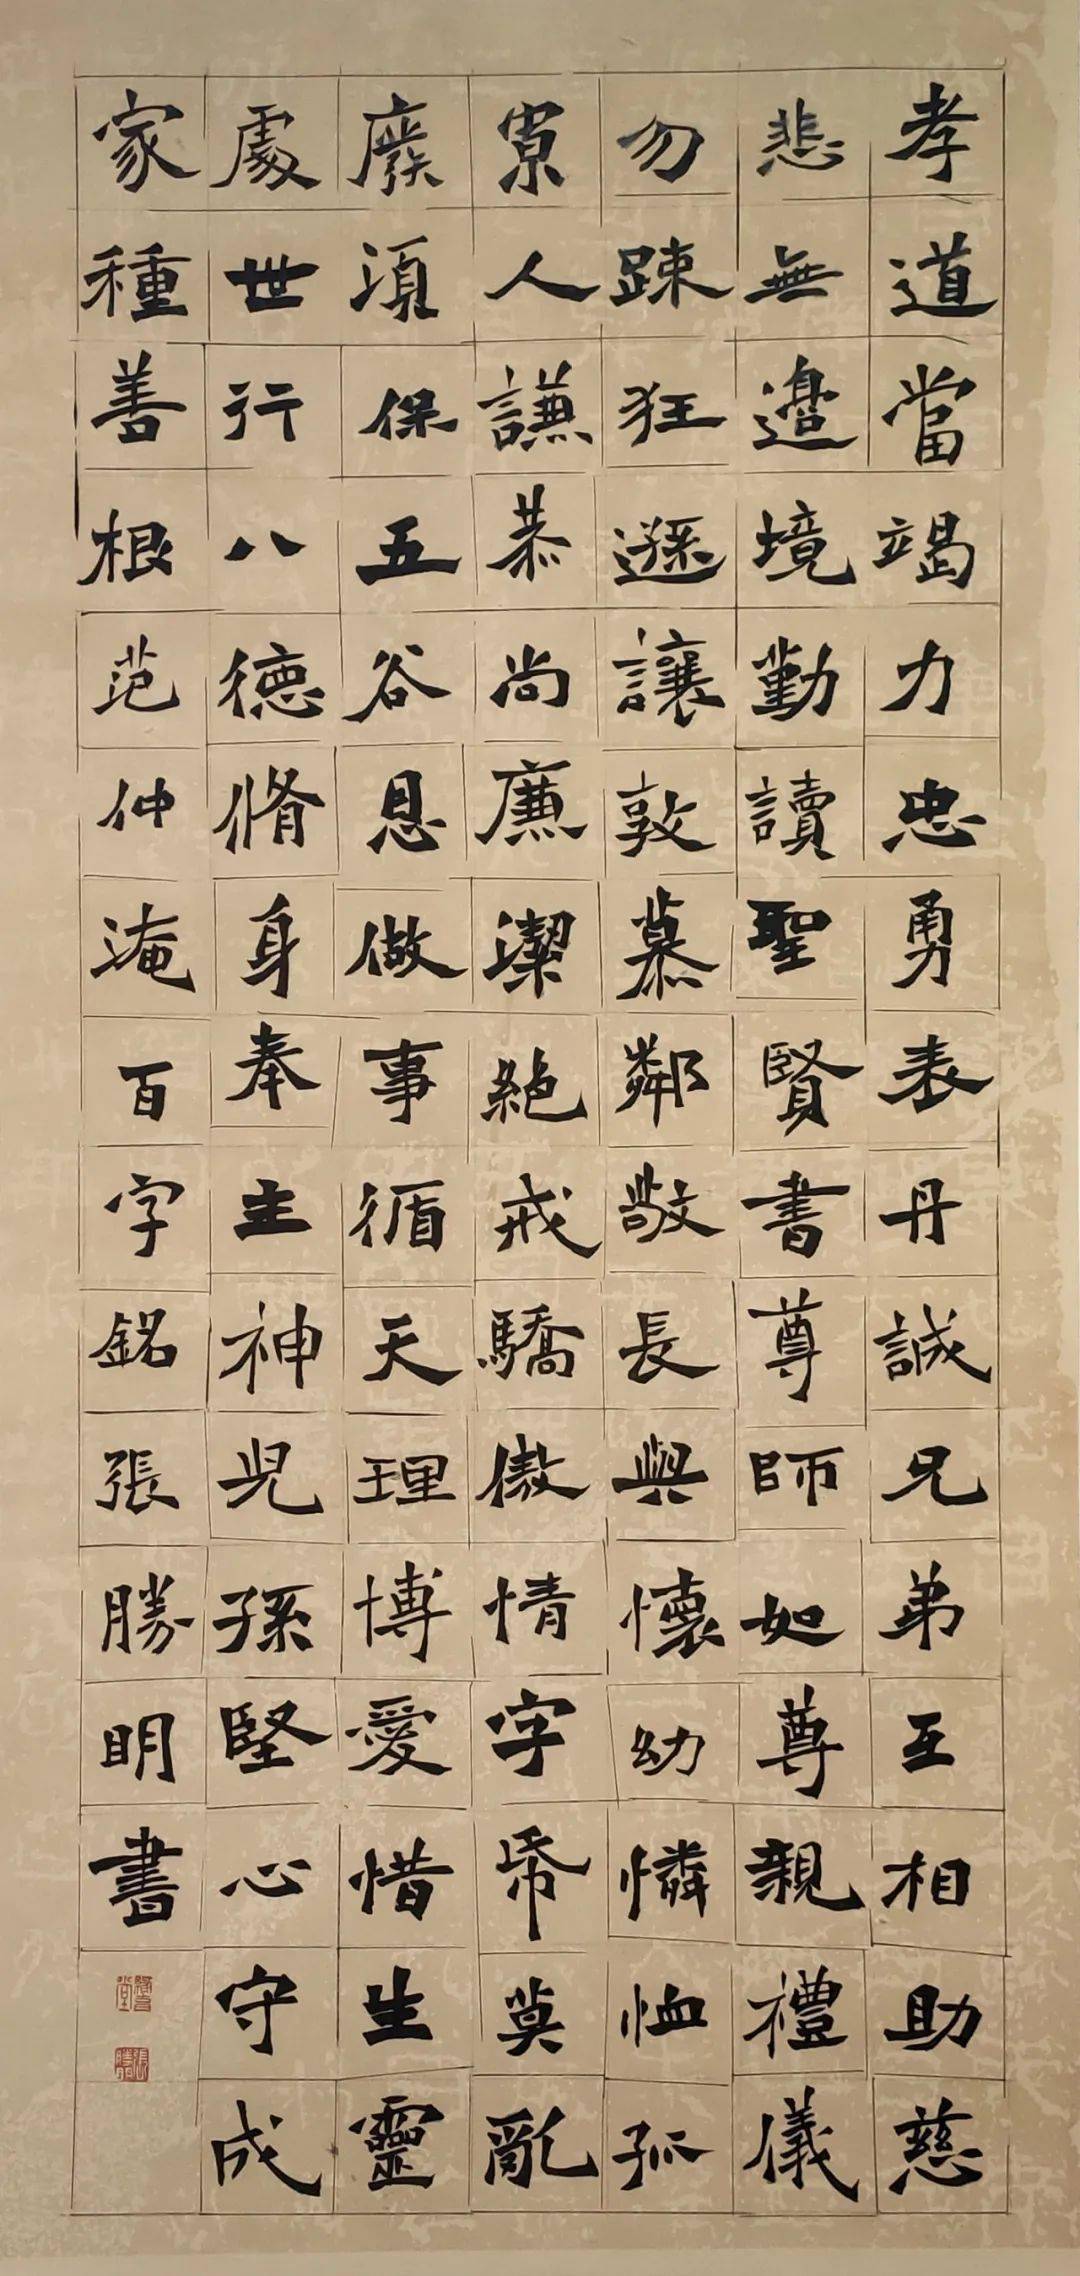 孝道當竭力忠勇表丹誠兄弟互相助慈
悲無邊境勤讀聖賢書尊師如尊親禮儀
勿踈狂遜讓敦慕鄰敬長與懷幼憐恤孤
寡人謙恭尚廉潔絕戒驕傲情字帋莫亂
廢湏保五谷恩做事循天理博愛惜生靈
處世行八德脩身奉主神兒孫堅心守成
家種善根范仲淹百字銘張勝明書